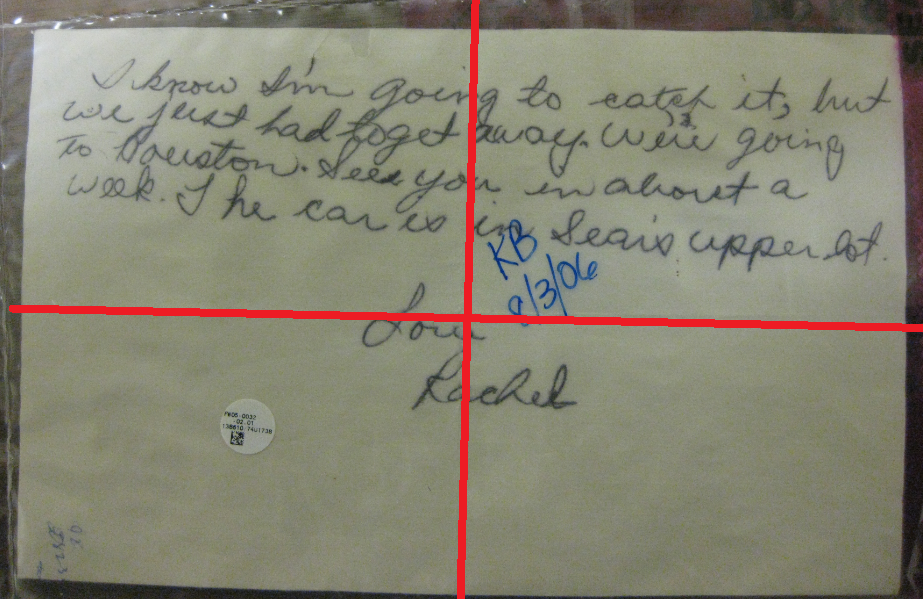 I know I'm going to catch it, but
we just had to get away. We're going
to Houston. See you in about a
week. The car is in Sears upper lot.
KB
8/3/06
Love
Rachel
PK05-0032
02.01